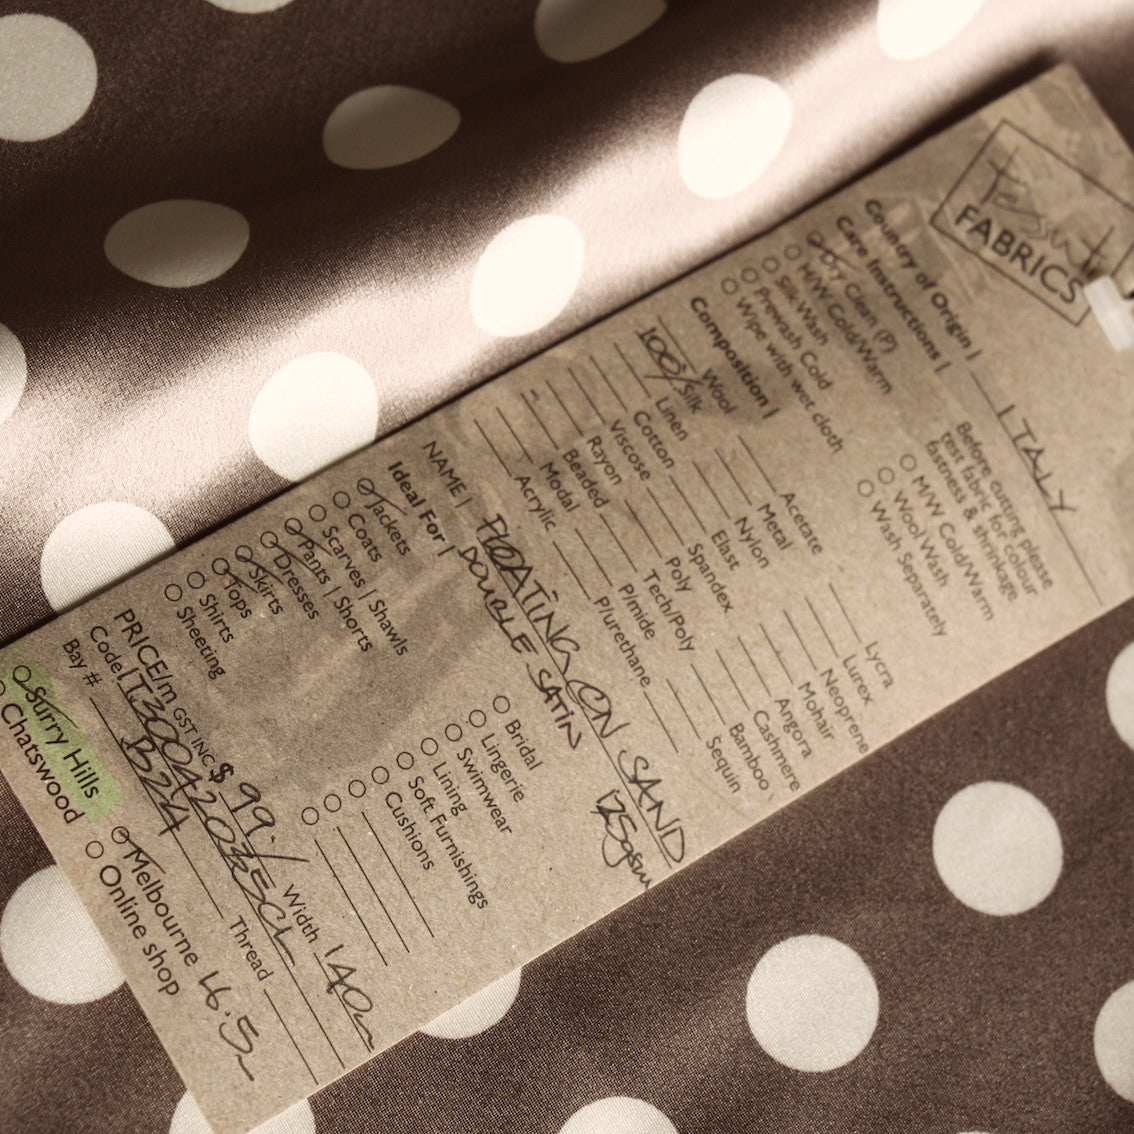 Tessuti
FABRICS
Country of Origin | ITALY
Care Instructions |
Dry Clean (P)
M/W Cold/Warm
Silk-Wash
Prewash Cold
Wipe with wet cloth
Before cutting please
test fabric for colour
fastness & shrinkage
M/W Cold/Warm
Wool Wash
Wash Separately
Composition |
Wool
100% Silk
Linen
Cotton
Viscose
Rayon
Beaded
Modal
Acrylic
Acetate
Metal
Nylon
Elast
Spandex
Poly
Tech/Poly
P/mide
P/urethane
Lycra
Lurex
Neoprene
Mohair
Angora
Cashmere
Bamboo
Sequin
NAME | FLOATING ON SAND
DOUBLE SATIN 175gsm
Ideal For |
Jackets
Coats
Scarves | Shawls
Pants | Shorts
Dresses
Skirts
Tops
Shirts
Sheeting
Bridal
Lingerie
Swimwear
Lining
Soft Furnishings
Cushions
PRICE/m GST INC $99.-/ Width 140cm
Code|
Bay # B24 Thread
Surry Hills
Chatswood
Melbourne 16.5m
Online shop